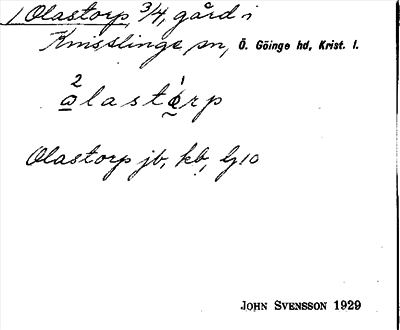 1 Olastorp, 3/4, gård i
Knisslinge sn, Ö. Göinge hd, Krist. l.
2 1
olastòrp
Olastorp jb, kb, lj10
JOHN SVENSSON 1929